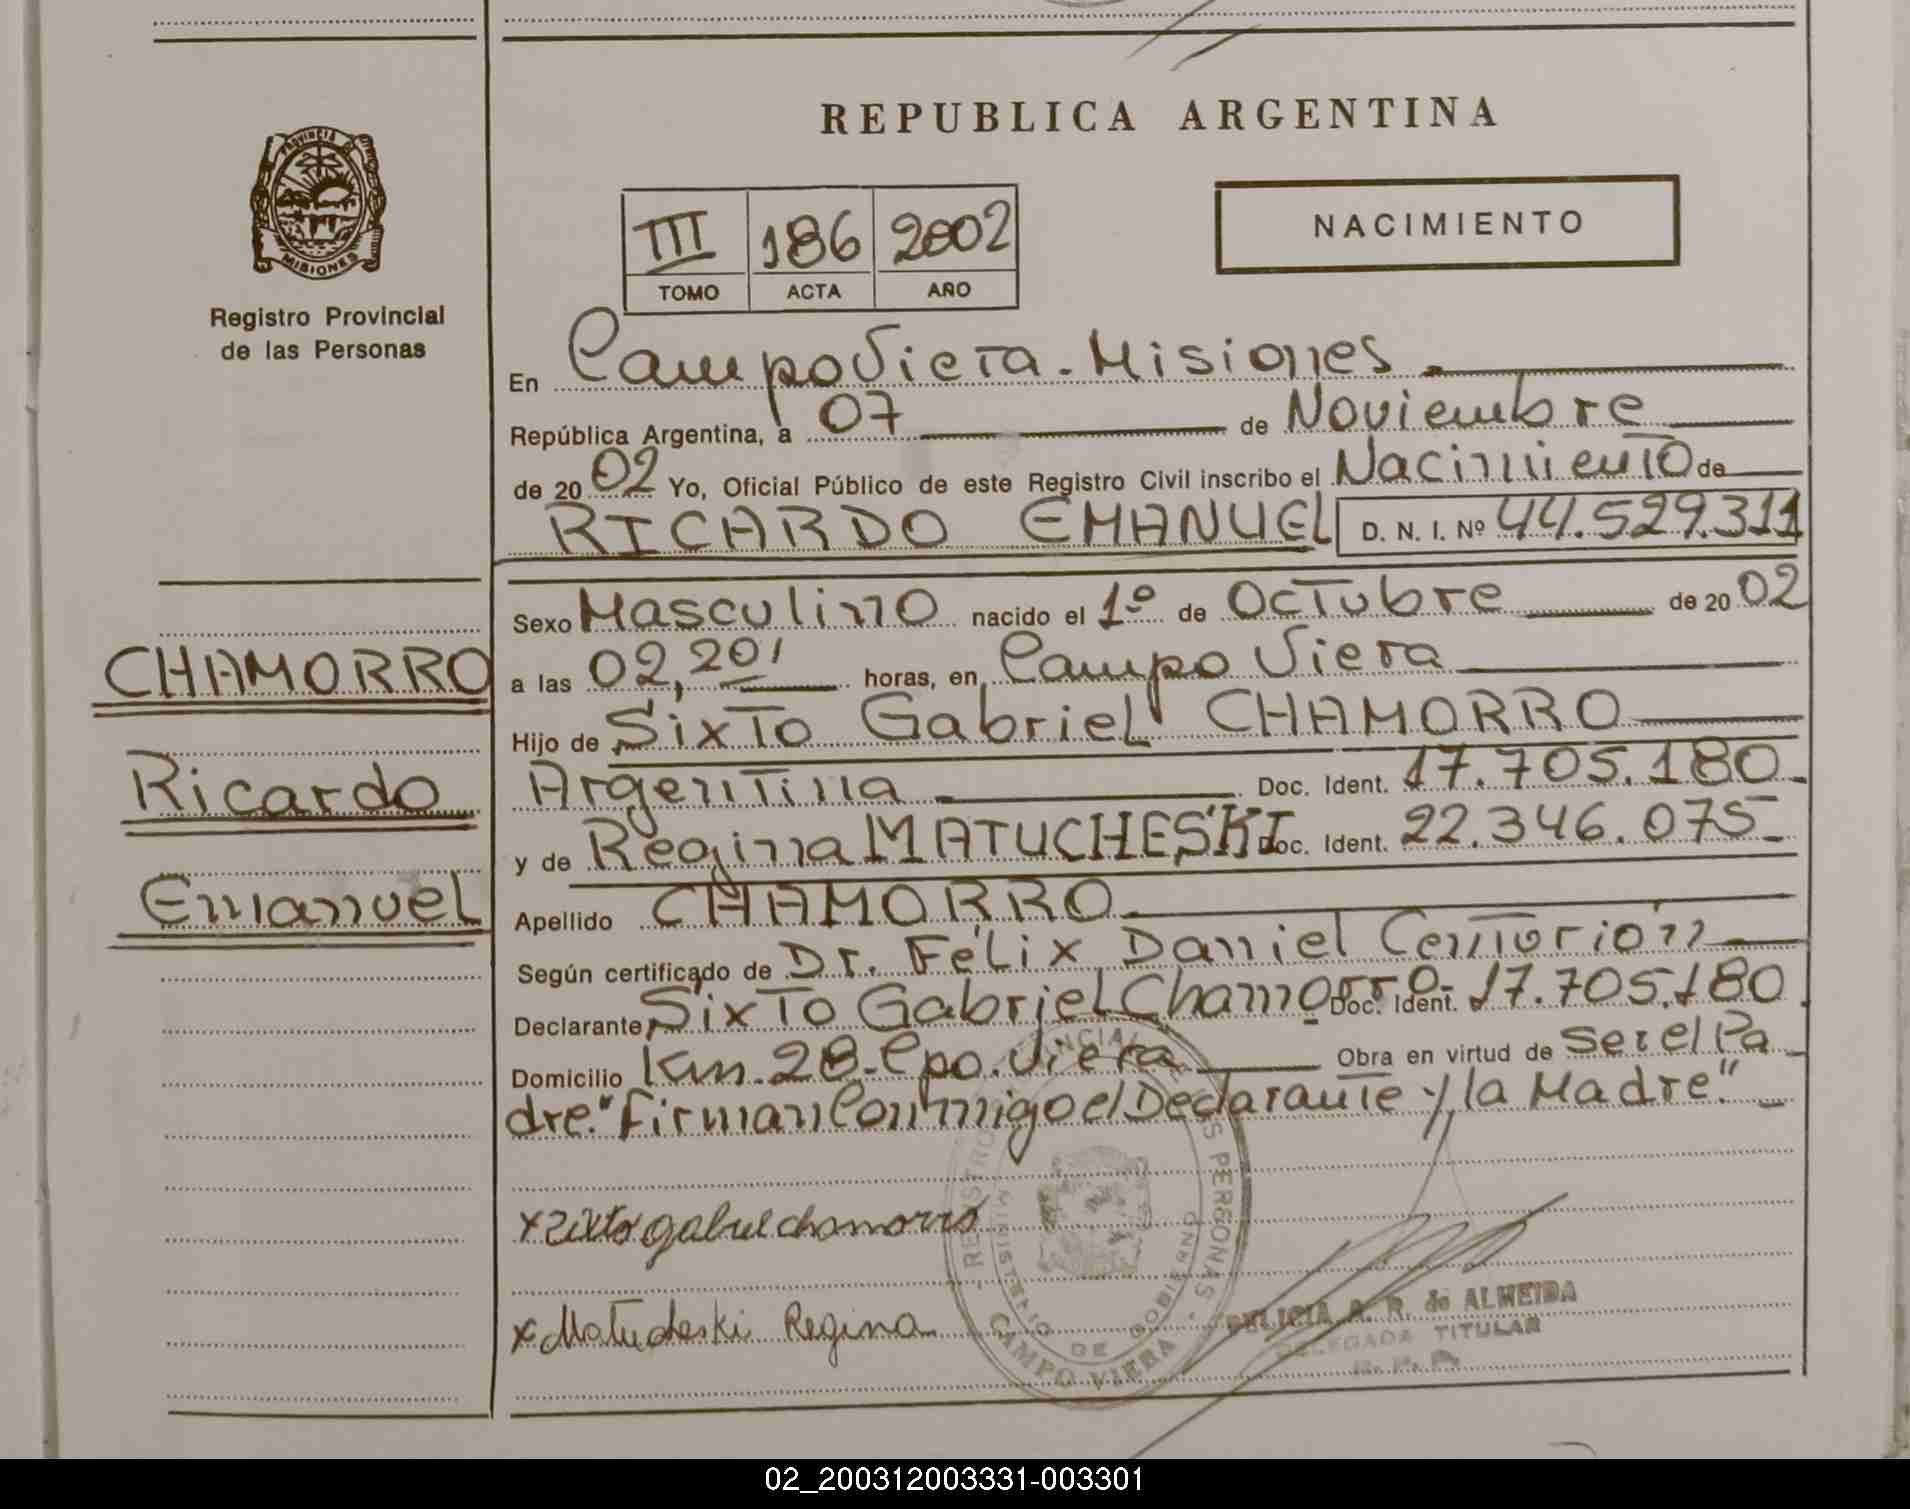 REPUBLICA ARGENTINA
PROVINCIA DE
MISIONES
Registro Provincial
de las Personas
III 186 2002
TOMO ACTA AÑO
NACIMIENTO
En Campo Viera - Misiones
República Argentina, a 07 de Noviembre
de 2002 Yo, Oficial Público de este Registro Civil inscribo el Nacimiento de
RICARDO EMANUEL D. N. I. Nº 44.529.311
Sexo Masculino nacido el 1º de Octubre de 2002
a las 02,20' horas, en Campo Viera
Hijo de Sixto Gabriel CHAMORRO
Argentina Doc. Ident. 17.705.180
y de Regina MATUCHESKI Doc. Ident. 22.346.075
Apellido CHAMORRO
Según certificado de Dr. Félix Daniel Centurión
Declarante Sixto Gabriel Chamorro- Doc. Ident. 17.705.180
Domicilio Km. 28- Cpo. Viera Obra en virtud de ser el Pa
dre." Firman Conmigo el Declarante y la Madre."
CHAMORRO
Ricardo
Emanuel
x Sixto gabriel chamorro
x Matucheski Regina
REGISTRO PROVINCIAL DE LAS PERSONAS
MINISTERIO DE GOBIERNO
CAMPO VIERA
DELICIA A. R. de ALMEIDA
DELEGADA TITULAR
R. P. P.
02_200312003331-003301